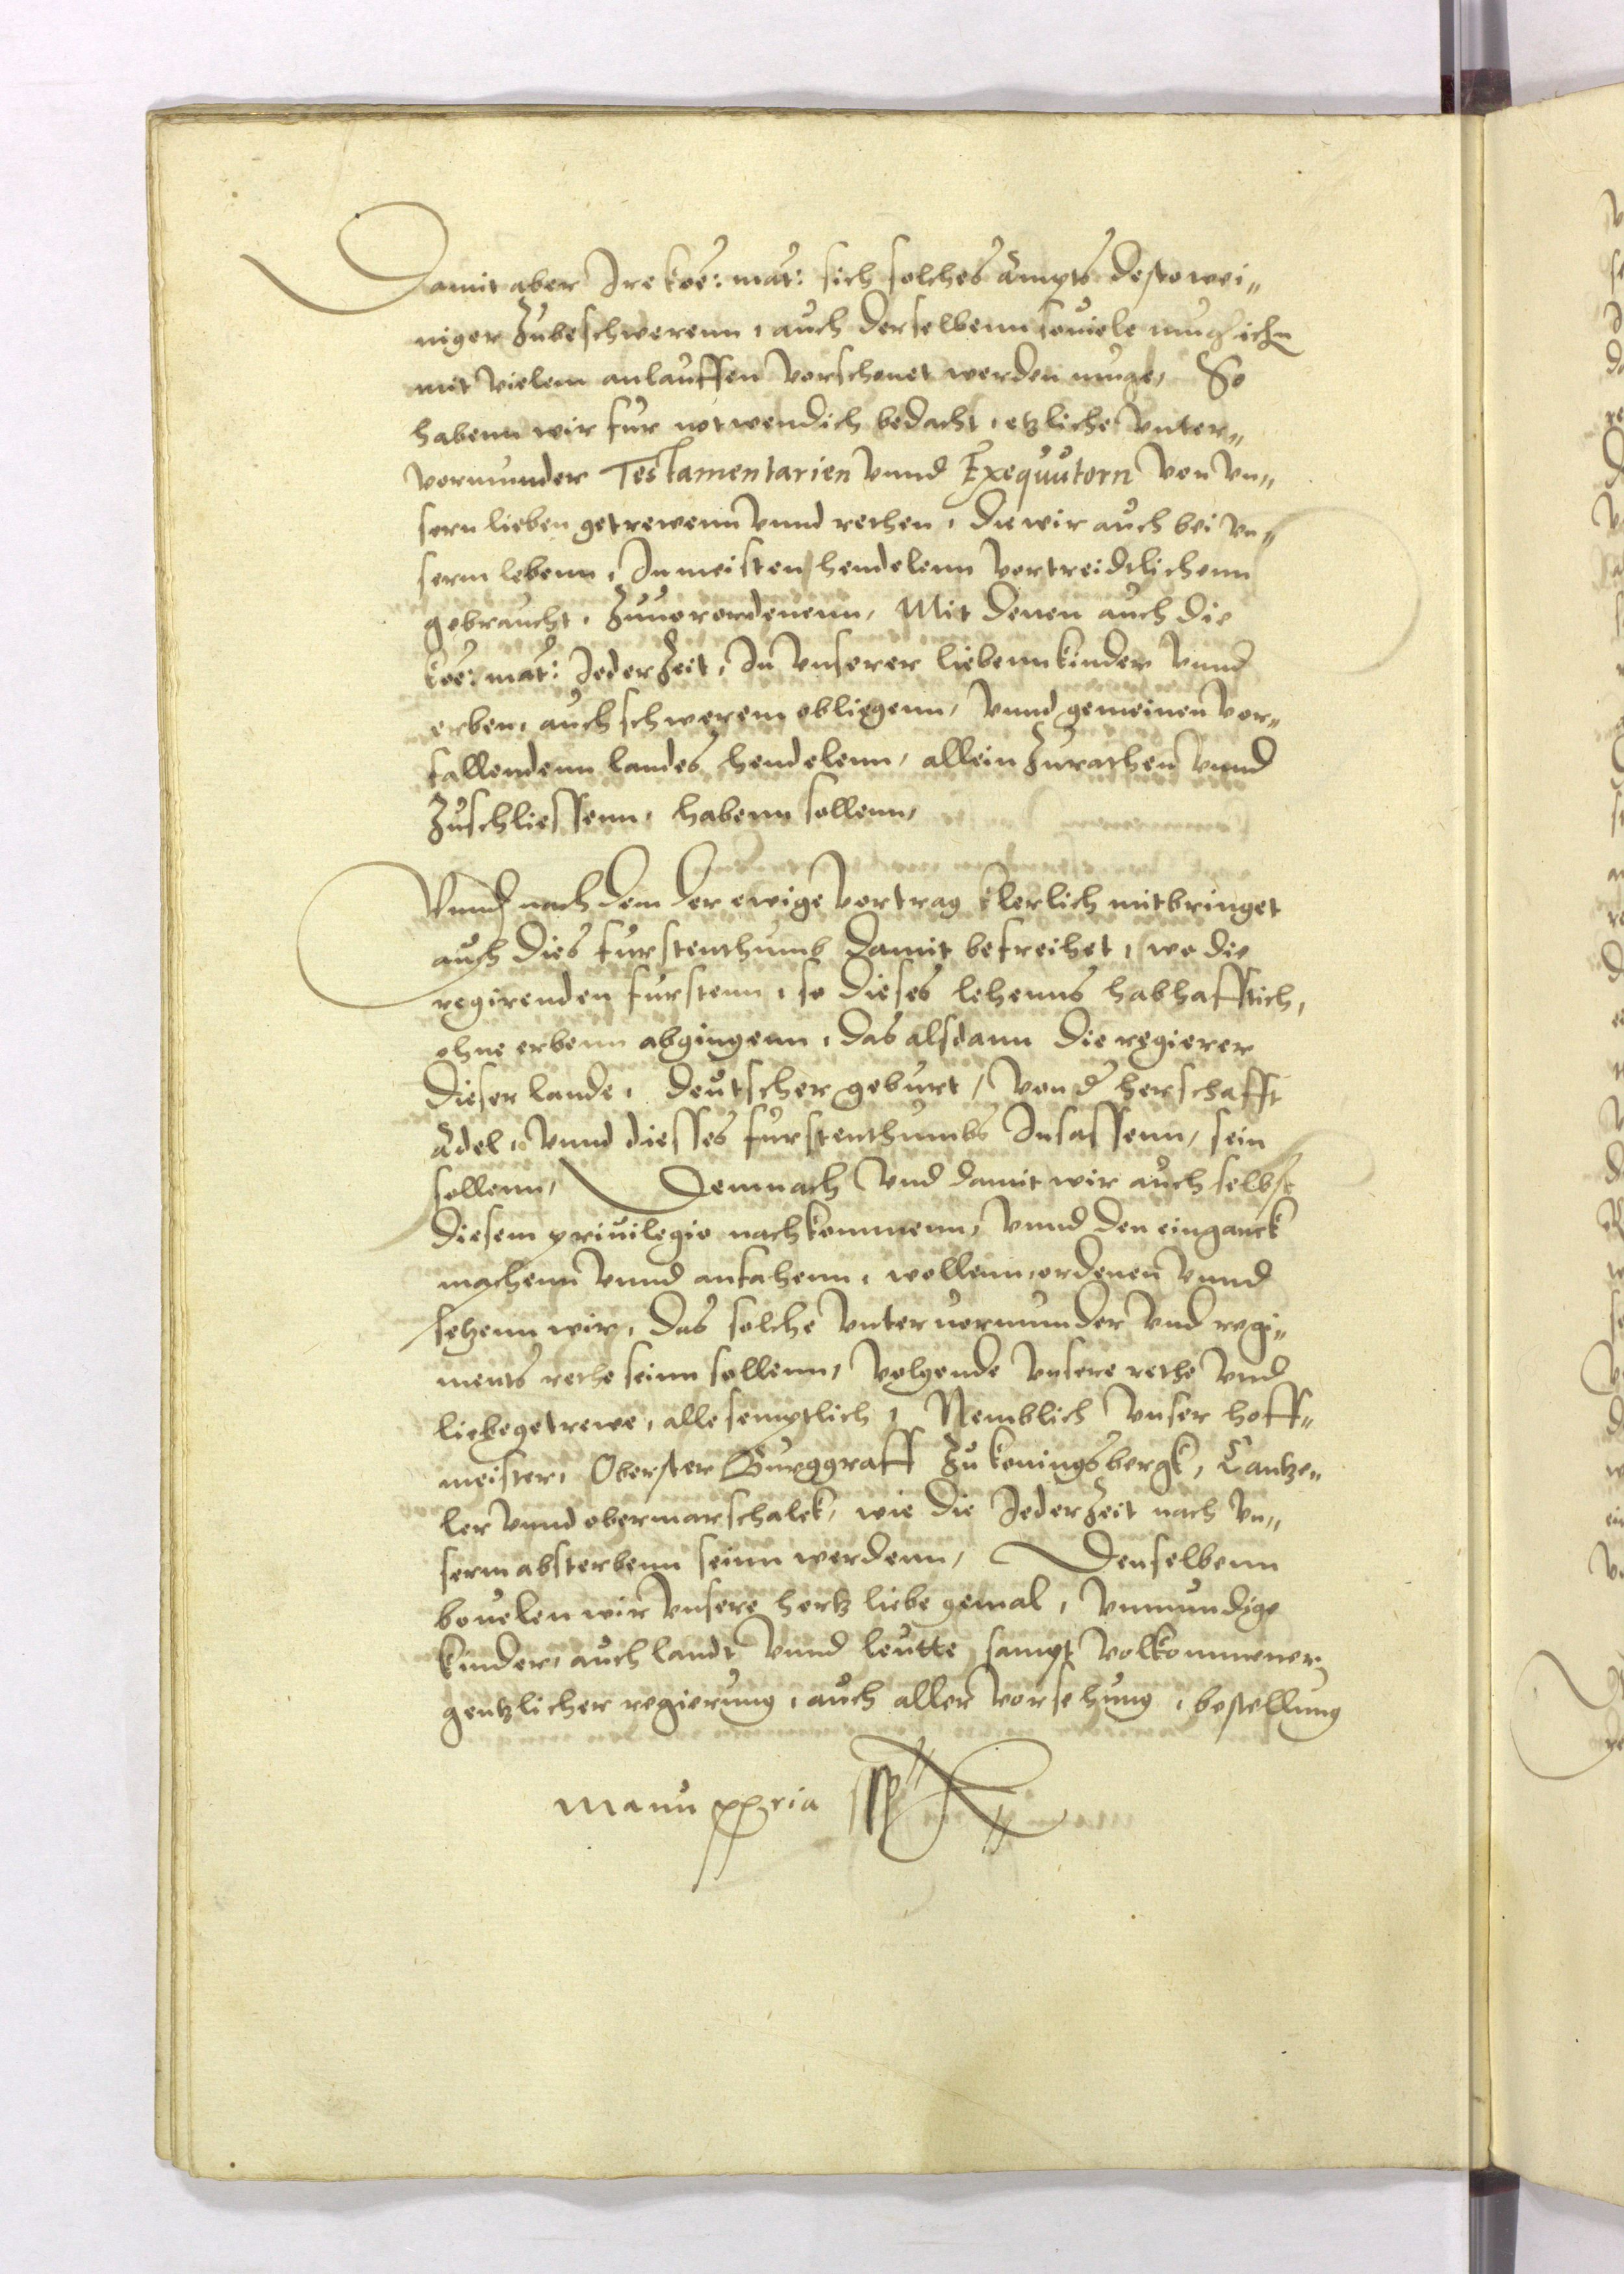 Damit aber Ire koe: mat: sich solches ampts desto wei„
niger Zubeschwerenn, auch derselbenn souiele muglichn
mit vielem anlauffen verschonet werden muge, So
habenn wir fur notwendich bedacht, etzliche vnter„
vormunder Testamentarien vnnd Exequutorn von vn„
sern lieben getrewenn vnnd rethen, die wir auch bei vn„
serm lebenn, In meisten hendelenn vertreidtlichenn
gebraucht, Zuuerordenenn, Mit denen auch die
koe: mat: Jeder Zeit, In vnserer liebenn kinder vnnd
erben, auch schwerem obliegenn, vnnd gemeinen vor„
fallendenn landes hendelenn, allein Zurathen vnnd
Zuschliessenn, habenn sollenn,
Vnnd nach dem der ewige vertrag klerlich mitbringet
auch dies furstenthumb damit befreihet, wo die
regirenden furstenn, so dieses lehenns habhafftich,
ohne erbenn abgingenn, das alsdann die regierer
dieser lande, deutscher geburt, von d herschafft
Adel, vnnd diesses furstenthumbs Insassenn, sein
sollenn, Demnach vnd damit wir auch selbst
diesem priuilegio nachkommenn, vnnd den einganck
machenn vnnd anfahenn, wollenn, ordenen vnnd
sehenn wir, das solche vnteruormunder vnd regi„
ments rethe seinn sollenn, volgende vnsere rethe vnd
liebe getrewe, alle semptlich, Nemblich vnser hoff„
meister, Oberster Burggraff Zu konigsbergk, Cantze„
ler vnnd obermarschalck, wie die Jeder Zeit nach vn„
serm absterbenn seinn werdenn, Denselbenn
beuelen wir vnsere hertz liebe gemal, vnmundige
kinder, auch landt vnnd leutte, sampt volkommener
gentzlicher regierung, auch aller vorsehung, bestellung
manu ppria